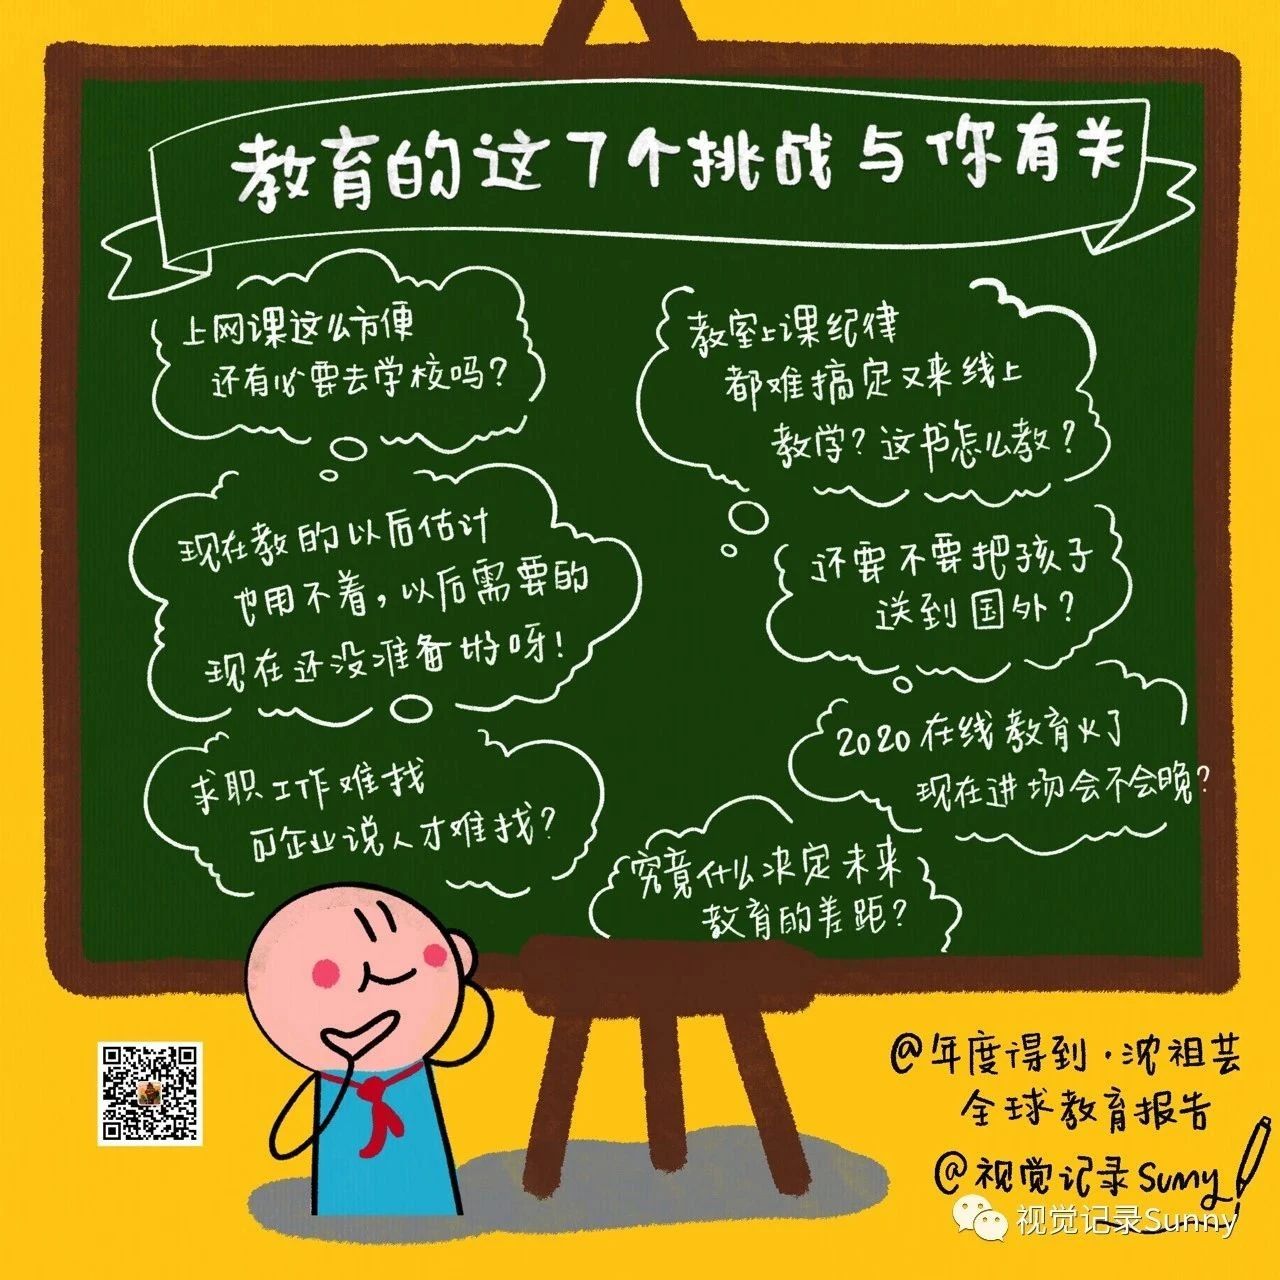 教育的这7个挑战与你有关
上网课这么方便
还有必要去学校吗?
现在教的以后估计
也用不着,以后需要的
现在还没准备好呀!
求职工作难找
可企业说人才难找?
教室上课纪律
都难搞定又来线上
教学?这书怎么教?
还要不要把孩子
送到国外?
2020在线教育火了
现在进场会不会晚?
究竟什么决定未来
教育的差距?
@年度得到·沈祖芸
全球教育报告
@视觉记录Sunny
视觉记录Sunny